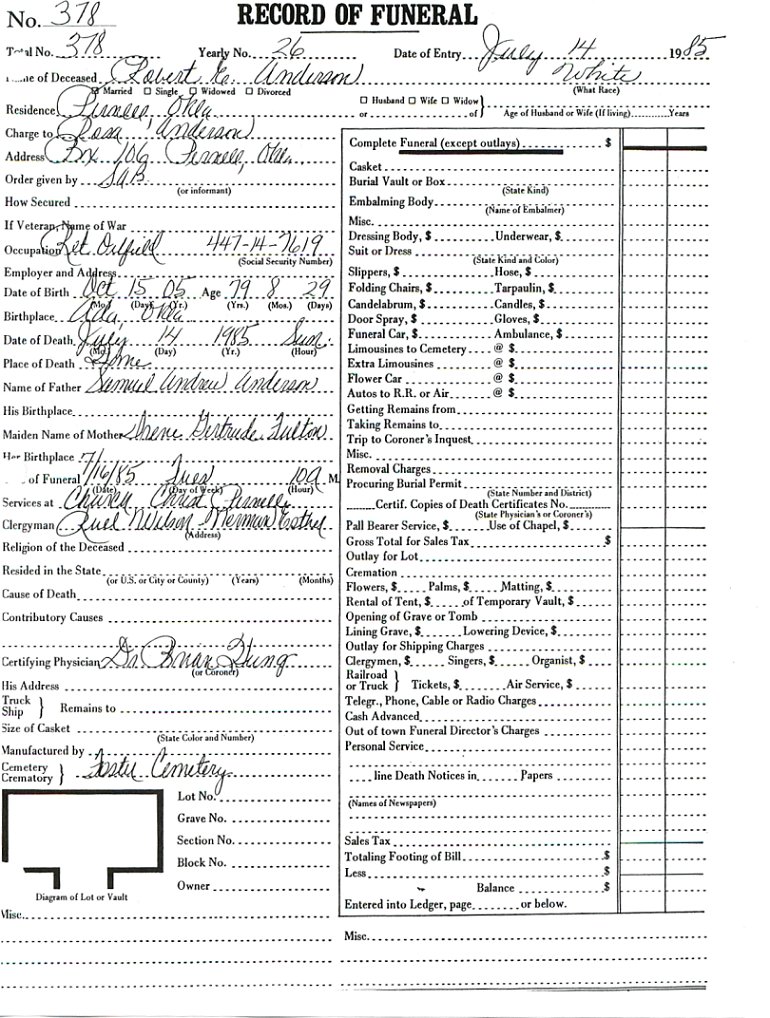 No. 378 RECORD OF FUNERAL
Total No. 378 Yearly No. 26 Date of Entry July 14 1985
Name of Deceased Robert E. Anderson White
Married Single Widowed Divorced (What Race)
Residence Pernell, Okla Husband Wife Widow
or of Age of Husband or Wife (If living) Years
Charge to Rosa Anderson
Address Box 106 Pernell, Okla.
Order given by SAB
(or informant)
How Secured
If Veteran, Name of War
Occupation Ret Oilfield 447-14-7619
(Social Security Number)
Employer and Address
Date of Birth Oct 15 05 Age 79 8 29
(Mo.) (Day) (Yr.) (Yrs.) (Mos.) (Days)
Birthplace Ada, Okla
Date of Death July 14 1985 Sun.
(Mo.) (Day) (Yr.) (Hour)
Place of Death Home
Name of Father Samuel Andrew Anderson
His Birthplace
Maiden Name of Mother Irene Gertrude Fulton
Her Birthplace
of Funeral 7/16/85 Tues 10a M.
(Date) (Day of Week) (Hour)
Services at Church Christ Pernell
Clergyman Wilson Herman
(Address)
Religion of the Deceased
Resided in the State
(or U.S. or City or County) (Years) (Months)
Cause of Death
Contributory Causes
Certifying Physician Dr. Brian
(or Coroner)
His Address
Truck Ship } Remains to
Size of Casket
(State Color and Number)
Manufactured by
Cemetery Crematory } Foster Cemetery
Lot No.
Grave No.
Section No.
Block No.
Owner
Diagram of Lot or Vault
Misc.
Complete Funeral (except outlays) $
Casket
Burial Vault or Box
(State Kind)
Embalming Body
(Name of Embalmer)
Misc.
Dressing Body, $ Underwear, $
Suit or Dress
(State Kind and Color)
Slippers, $ Hose, $
Folding Chairs, $ Tarpaulin, $
Candelabrum, $ Candles, $
Door Spray, $ Gloves, $
Funeral Car, $ Ambulance, $
Limousines to Cemetery @ $
Extra Limousines @ $
Flower Car @ $
Autos to R.R. or Air @ $
Getting Remains from
Taking Remains to
Trip to Coroner's Inquest
Misc.
Removal Charges
Procuring Burial Permit
(State Number and District)
Certif. Copies of Death Certificates No.
(State Physician's or Coroner's)
Pall Bearer Service, $ Use of Chapel, $
Gross Total for Sales Tax $
Outlay for Lot
Cremation
Flowers, $ Palms, $ Matting, $
Rental of Tent, $ of Temporary Vault, $
Opening of Grave or Tomb
Lining Grave, $ Lowering Device, $
Outlay for Shipping Charges
Clergymen, $ Singers, $ Organist, $
Railroad or Truck } Tickets, $ Air Service, $
Telegr., Phone, Cable or Radio Charges
Cash Advanced
Out of town Funeral Director's Charges
Personal Service
line Death Notices in Papers
(Names of Newspapers)
Sales Tax
Totaling Footing of Bill $
Less $
Balance $
Entered into Ledger, page or below.
Misc.